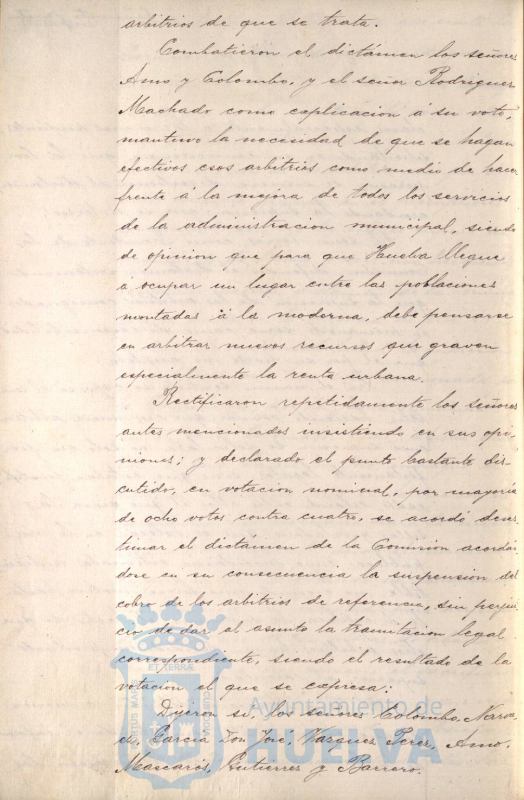 arbitrios de que se trata.
Combatieron el dictámen los señores
Amo y Colombo, y el señor Rodriguez
Machado como esplicacion á su voto,
mantuvo la necesidad de que se hagan
efectivos esos arbitrios como medio de hacer
frente á la mejora de todos los servicios
de la administracion municipal, siendo
de opinion que para que Huelva llegue
á ocupar un lugar entre las poblaciones
montadas á la moderna, debe pensarse
en arbitrar nuevos recursos que graven
especialmente la renta urbana.
Rectificaron repetidamente los señores
antes mencionados insistiendo en sus opi-
niones; y declarado el punto bastante dis-
cutido, en votacion nominal, por mayoría
de ocho votos contra cuatro, se acordó deses-
timar el dictámen de la Comisión acordán
dose en su consecuencia la suspension del
cobro de los arbitrios de referencia, sin perjui-
cio de dar al asunto la tramitacion legal
correspondiente, siendo el resultado de la
votacion el que se expresa:
Dijeron si, los señores Colombo, 
García Don José, Vazquez Perez, Amo,
Mascarós, Gutierrez y Barrero.
Ayuntamiento de
HUELVA
PORTUS MARIS ET TERRAE CUSTODIA